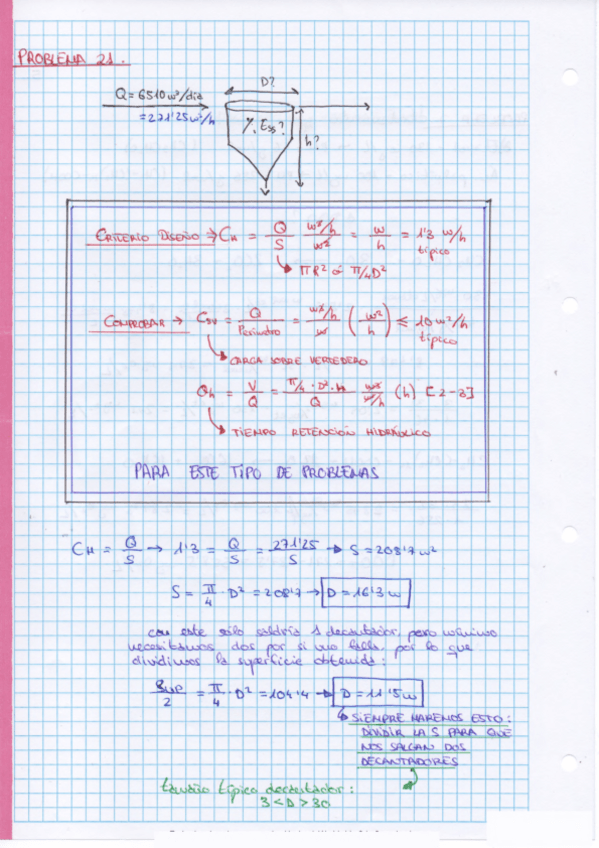 PROBLEMA 21.
D?
Q = 6510 m³/dia
= 271'25 m³/h
% Ess?
h?
CRITERIO DISEÑO → CH = Q/S m³/h / m² = m/h = 1'3 m/h típico
πR² ó π/4 D²
COMPROBAR → CSV = Q/Perímetro = m³/h / m (m²/h) ≤ 10 m²/h típico
CARGA SOBRE VERTEDERO
θh = V/Q = π/4 · D² · h / Q m³ / m³/h (h) [2-3]
TIEMPO RETENCIÓN HIDRÁULICO
PARA ESTE TIPO DE PROBLEMAS
CH = Q/S → 1'3 = Q/S = 271'25/S → S = 208'7 m²
S = π/4 · D² = 208'7 → D = 16'3 m
con este sólo saldría 1 decantador, pero mínimo
necesitamos dos por si uno falla, por lo que
dividimos la superficie obtenida:
Sup/2 = π/4 · D² = 104'4 → D = 11'5 m
SIEMPRE HAREMOS ESTO:
DIVIDIR LA S PARA QUE
NOS SALGAN DOS
DECANTADORES
tamaño típico decantador:
3 < D > 30